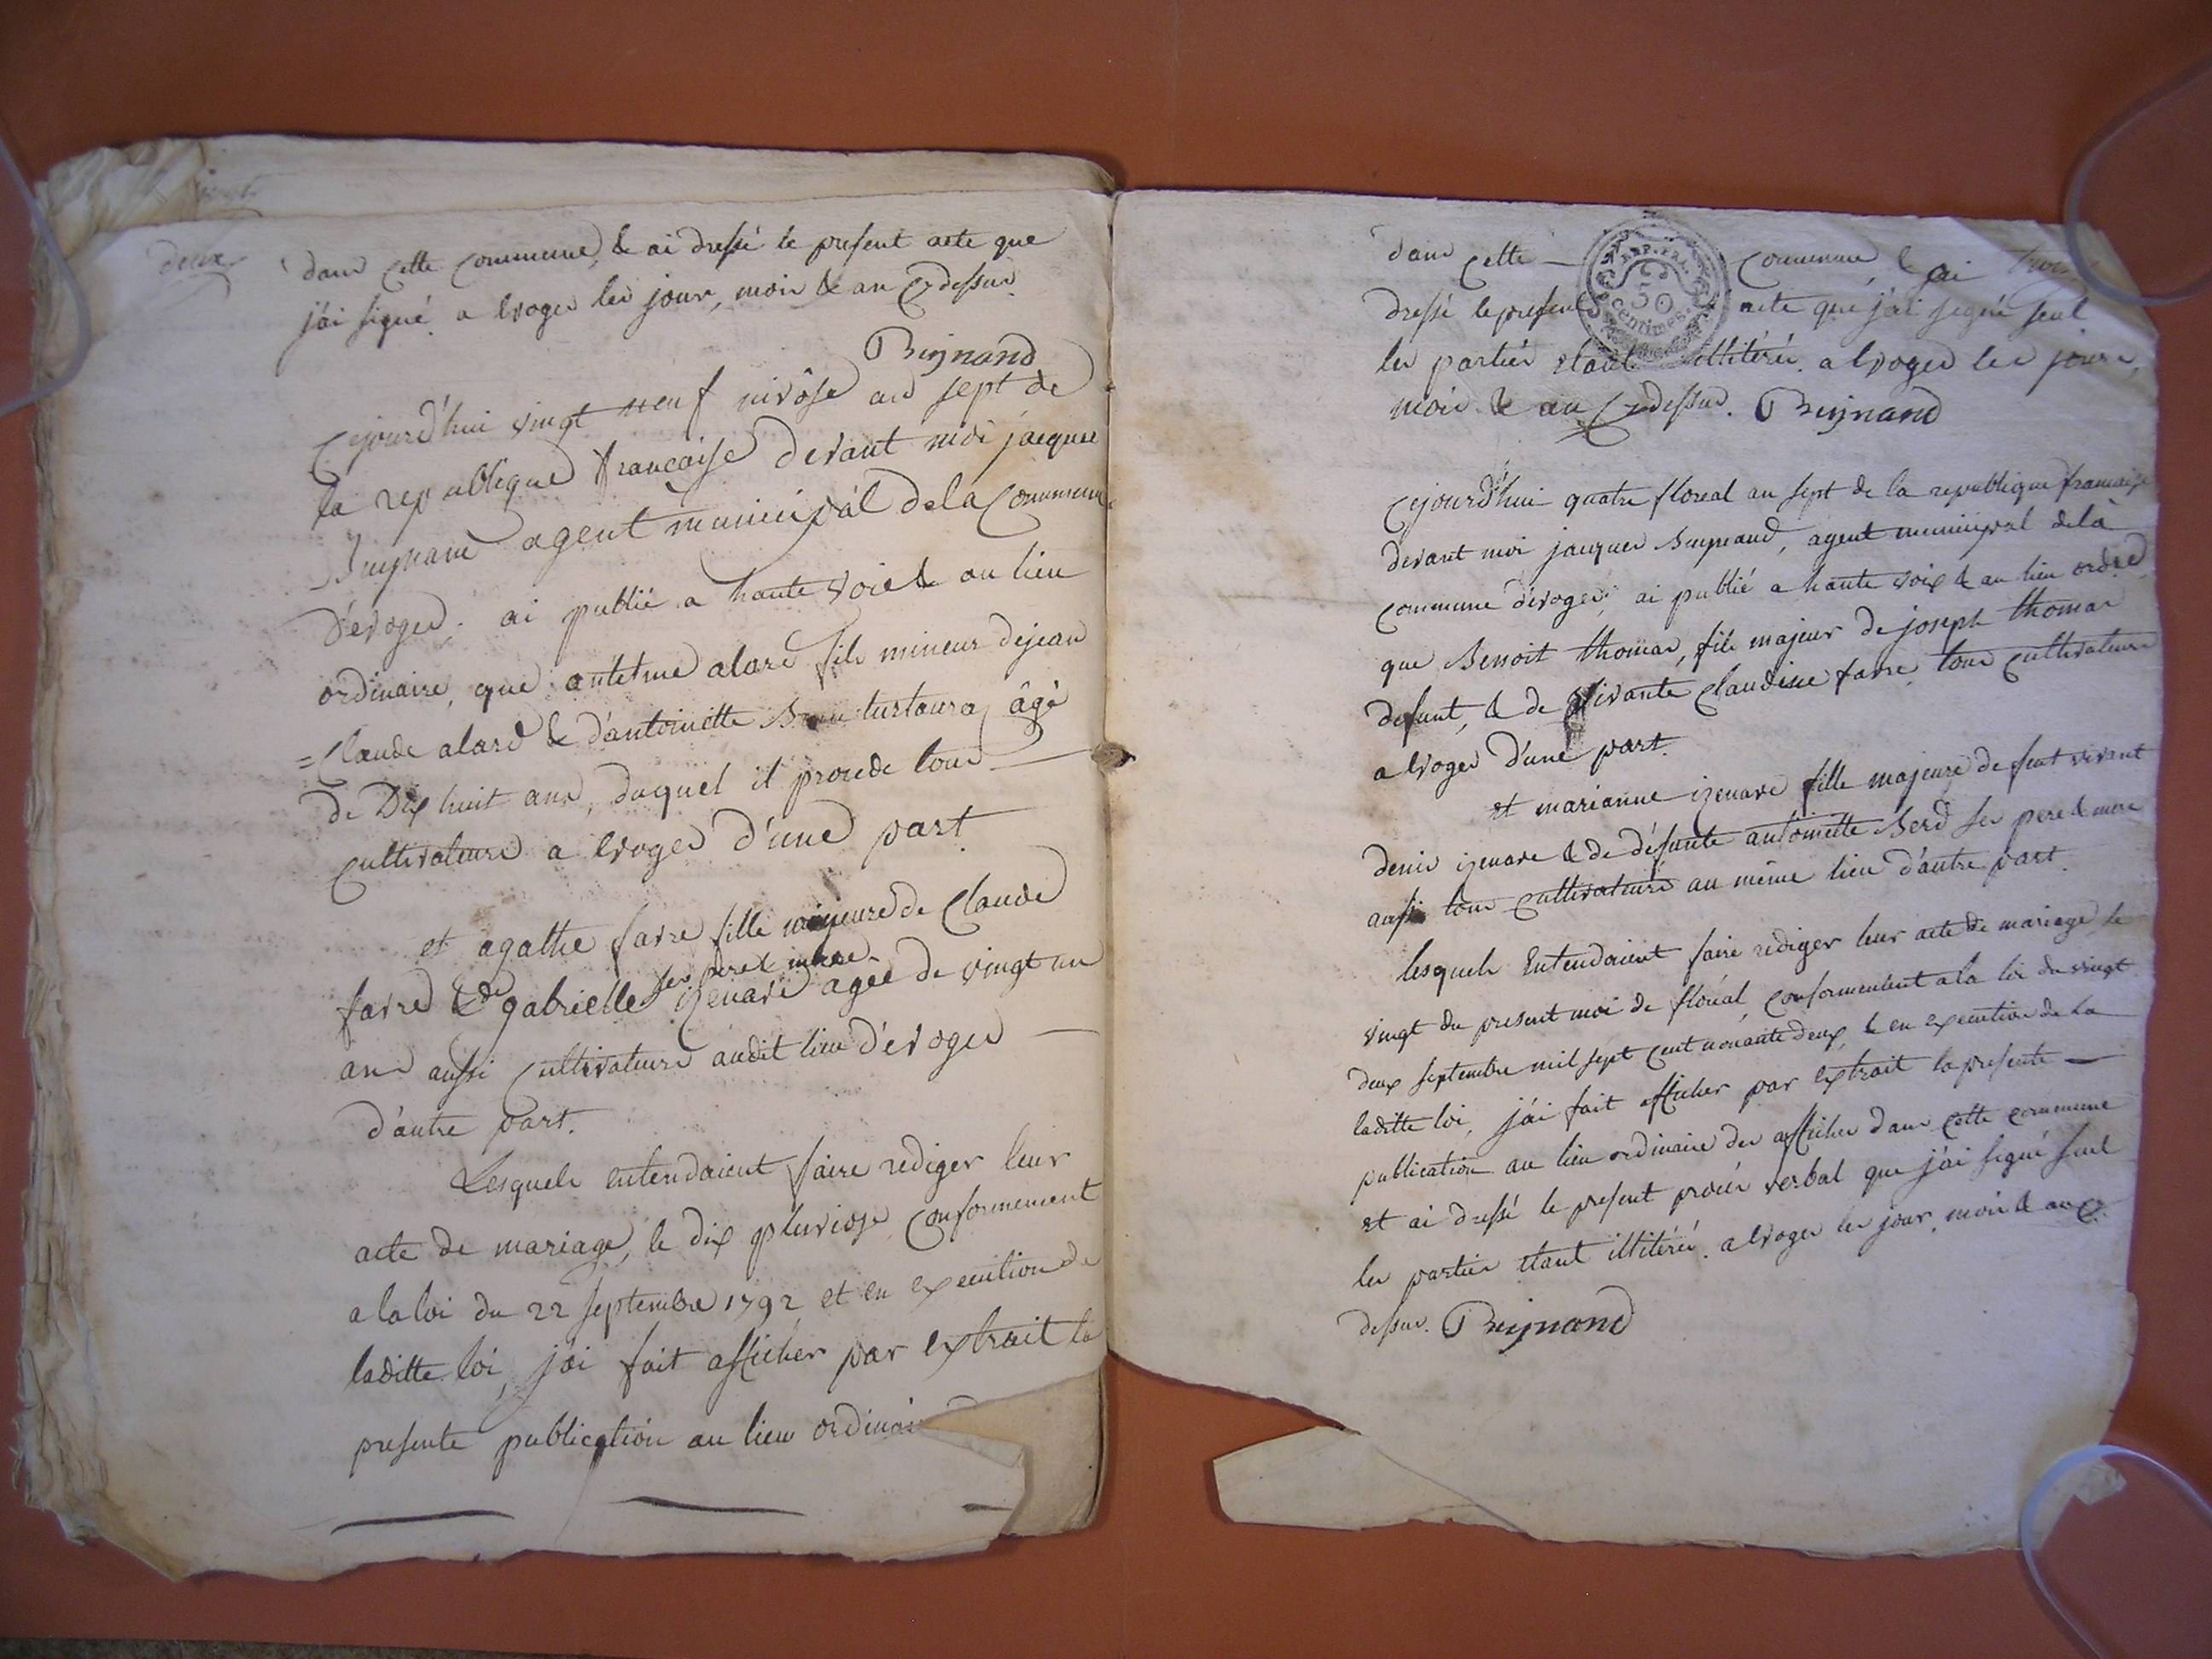 deux
dans cette commune, & ai dressé le present acte que
j'ai signé a Evoges les jour, mois & an Cydessus
Buynand
Cejourd'hui vingt neuf nivôse an sept de
la republique françaisse devant moi jacques
Buynand agent municipal de la Commune
d'évoges, ai publié a haute voie & au lieu
ordinaire, que antelme alard fils mineur dejean
=Claude alard & d'antoinette turtoura âgé
de Dix huit ans, duquel il procede tous
Cultivateurs a Evoges d'une part
et agathe favre fille majeure de Claude
ses pere & mere
favre & de gabrielle izenard agée de vingt un
ans aussi Cultivateurs audit lieu d'évoges
d'autre part.
Lesquels entendaient faire rediger leur
acte de mariage, le dix pluviose, Conformement
a la loi du 22 septembre 1792 et en execution de
laditte loi, j'ai fait afficher par extrait la
presente publication au lieu ordinai
dans cette commune & ai trois
REP. FRA.
50
Centimes.
dressé le present acte que j'ai signé seul
les parties etant illitérés. a Evoges les jours,
mois & an Cydessus. Buynand
Cejourd'hui quatre floreal an sept de la republique française
devant moi jacques Buynand, agent municipal dela
commune d'évoges, ai publié a haute voix & au lieu ordre
que Benoit thomas, fils majeur de joseph thomas
defunt, & de vivante Claudine favre, tous Cultivateurs
a Evoges d'une part.
et marianne izenard fille majeure de vivant
denis izenard & de défunte antoinette Berd ses pere & mere
aussi tous Cultivateurs au même lieu d'autre part.
lesquels Entendaient faire rédiger leur acte de mariage le
vingt du present moi de floréal, Conformement a la loi du vingt
deux septembre mil sept Cent nonante deux, & en execution de la
laditte loi, j'ai fait afficher par extrait la presente
publication au lieu ordinaire des affiches dans cette commune
et ai dressé le present procès verbal que j'ai signé seul
les parties etant illitérés. a Evoges les jour, mois & an Cy
dessus. Buynand